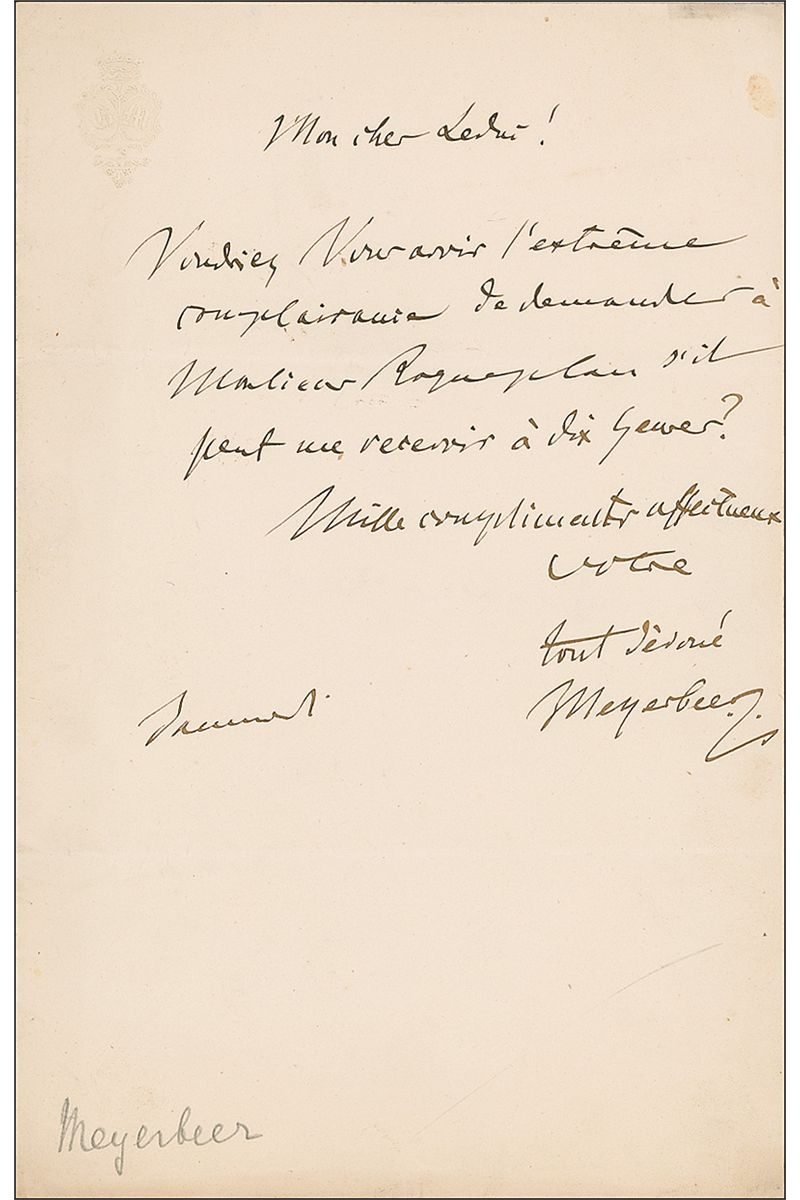 Mon cher Leduc!
Voudriez Vous avoir l'extrême
complaisance de demander à
Monsieur Roqueplan s'il
peut me recevoir à dix heures?
Mille compliments affectueux
votre
tout dévoué
Meyerbeer.
Samedi
Meyerbeer